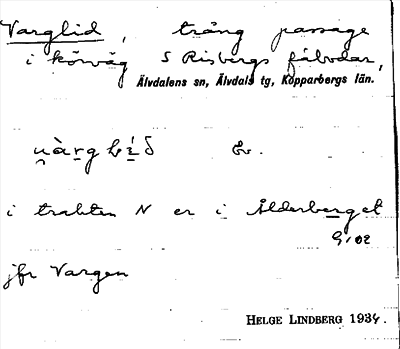 Varglid, trång passage
i körväg S Risbergs fäbodar,
Älvdalens sn, Älvdals tg, Kopparbergs län.
i trakten N er i Ålderberget
jfr Vargen
HELGE LINDBERG 1934.